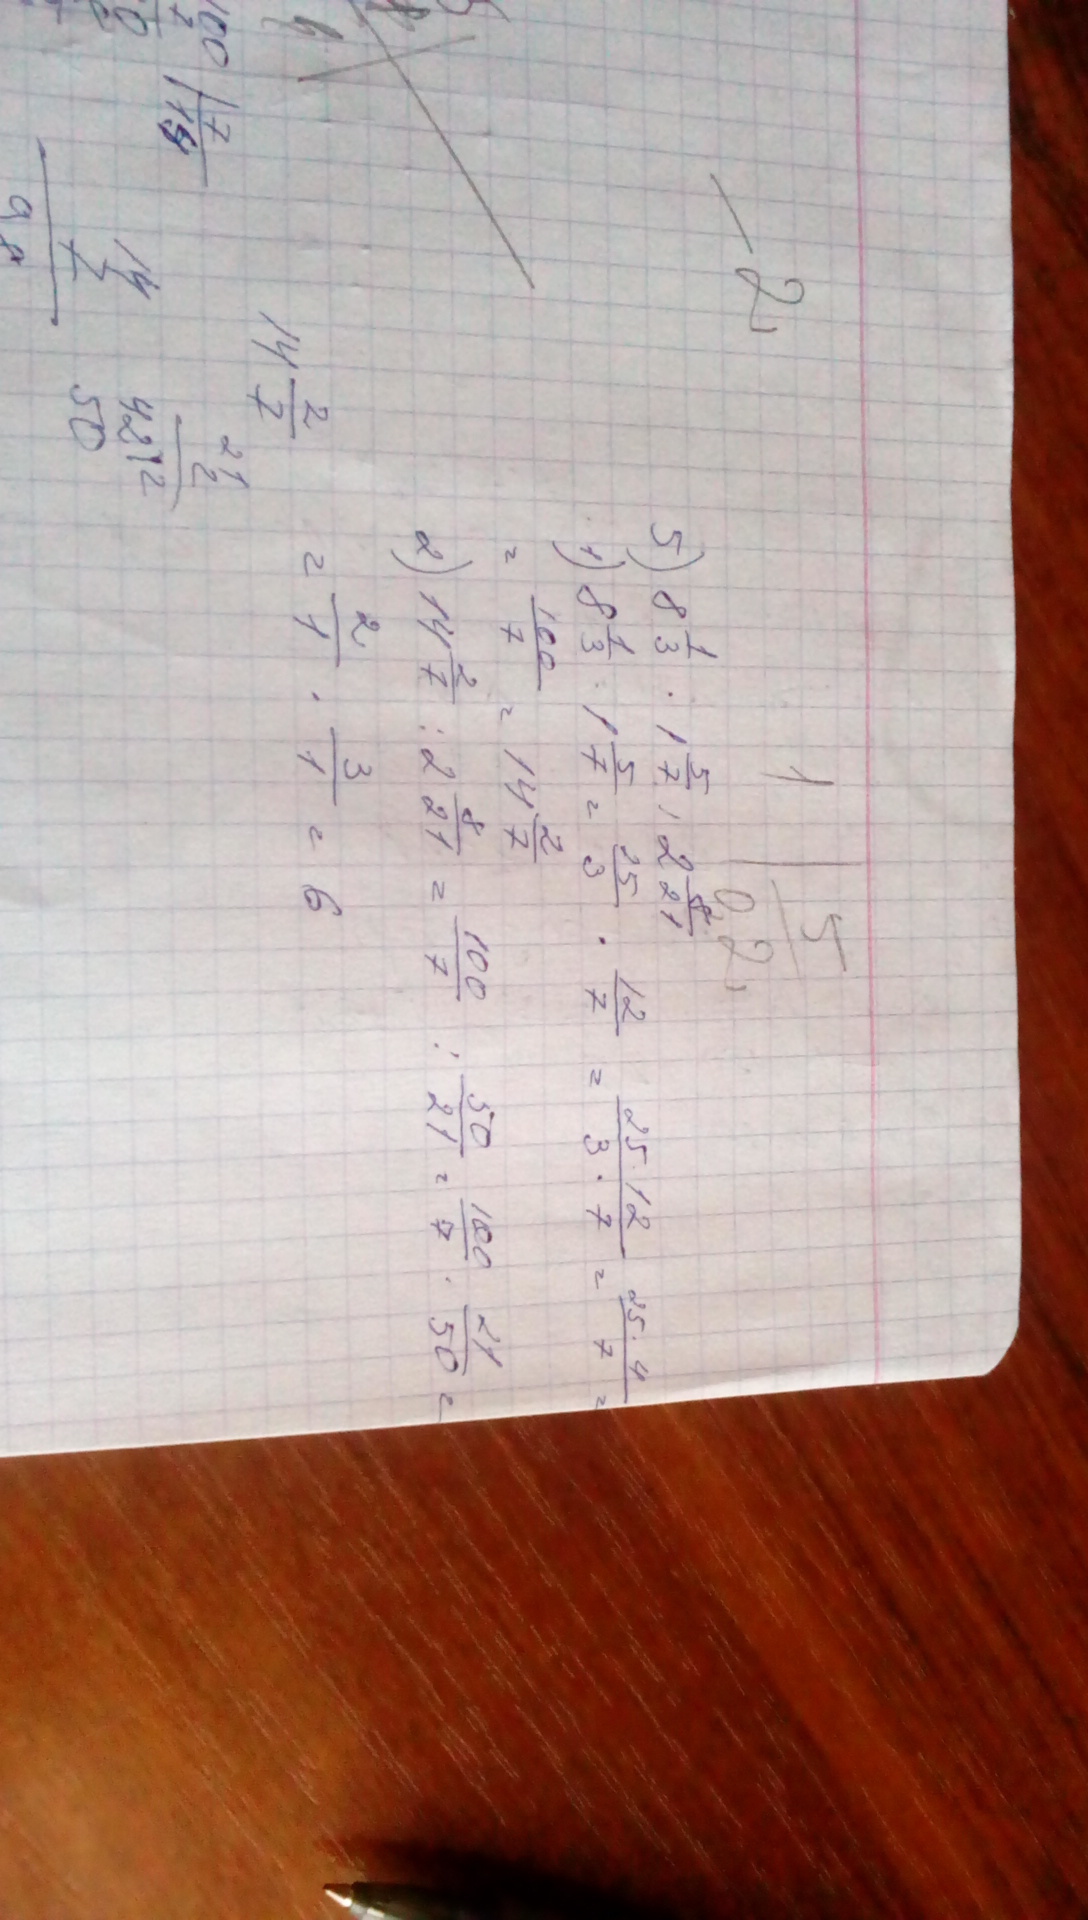 5) 8 1/3 · 1 5/7 : 2 8/21
1) 8 1/3 · 1 5/7 = 25/3 · 12/7 = 25·12/3·7 = 25·4/7 =
= 100/7 = 14 2/7
2) 14 2/7 : 2 8/21 = 100/7 : 50/21 = 100/7 · 21/50 =
= 2/1 · 3/1 = 6
1 5
0,2
- 2
14 2/7
21
2
42 12
50
14
7
98
100 7